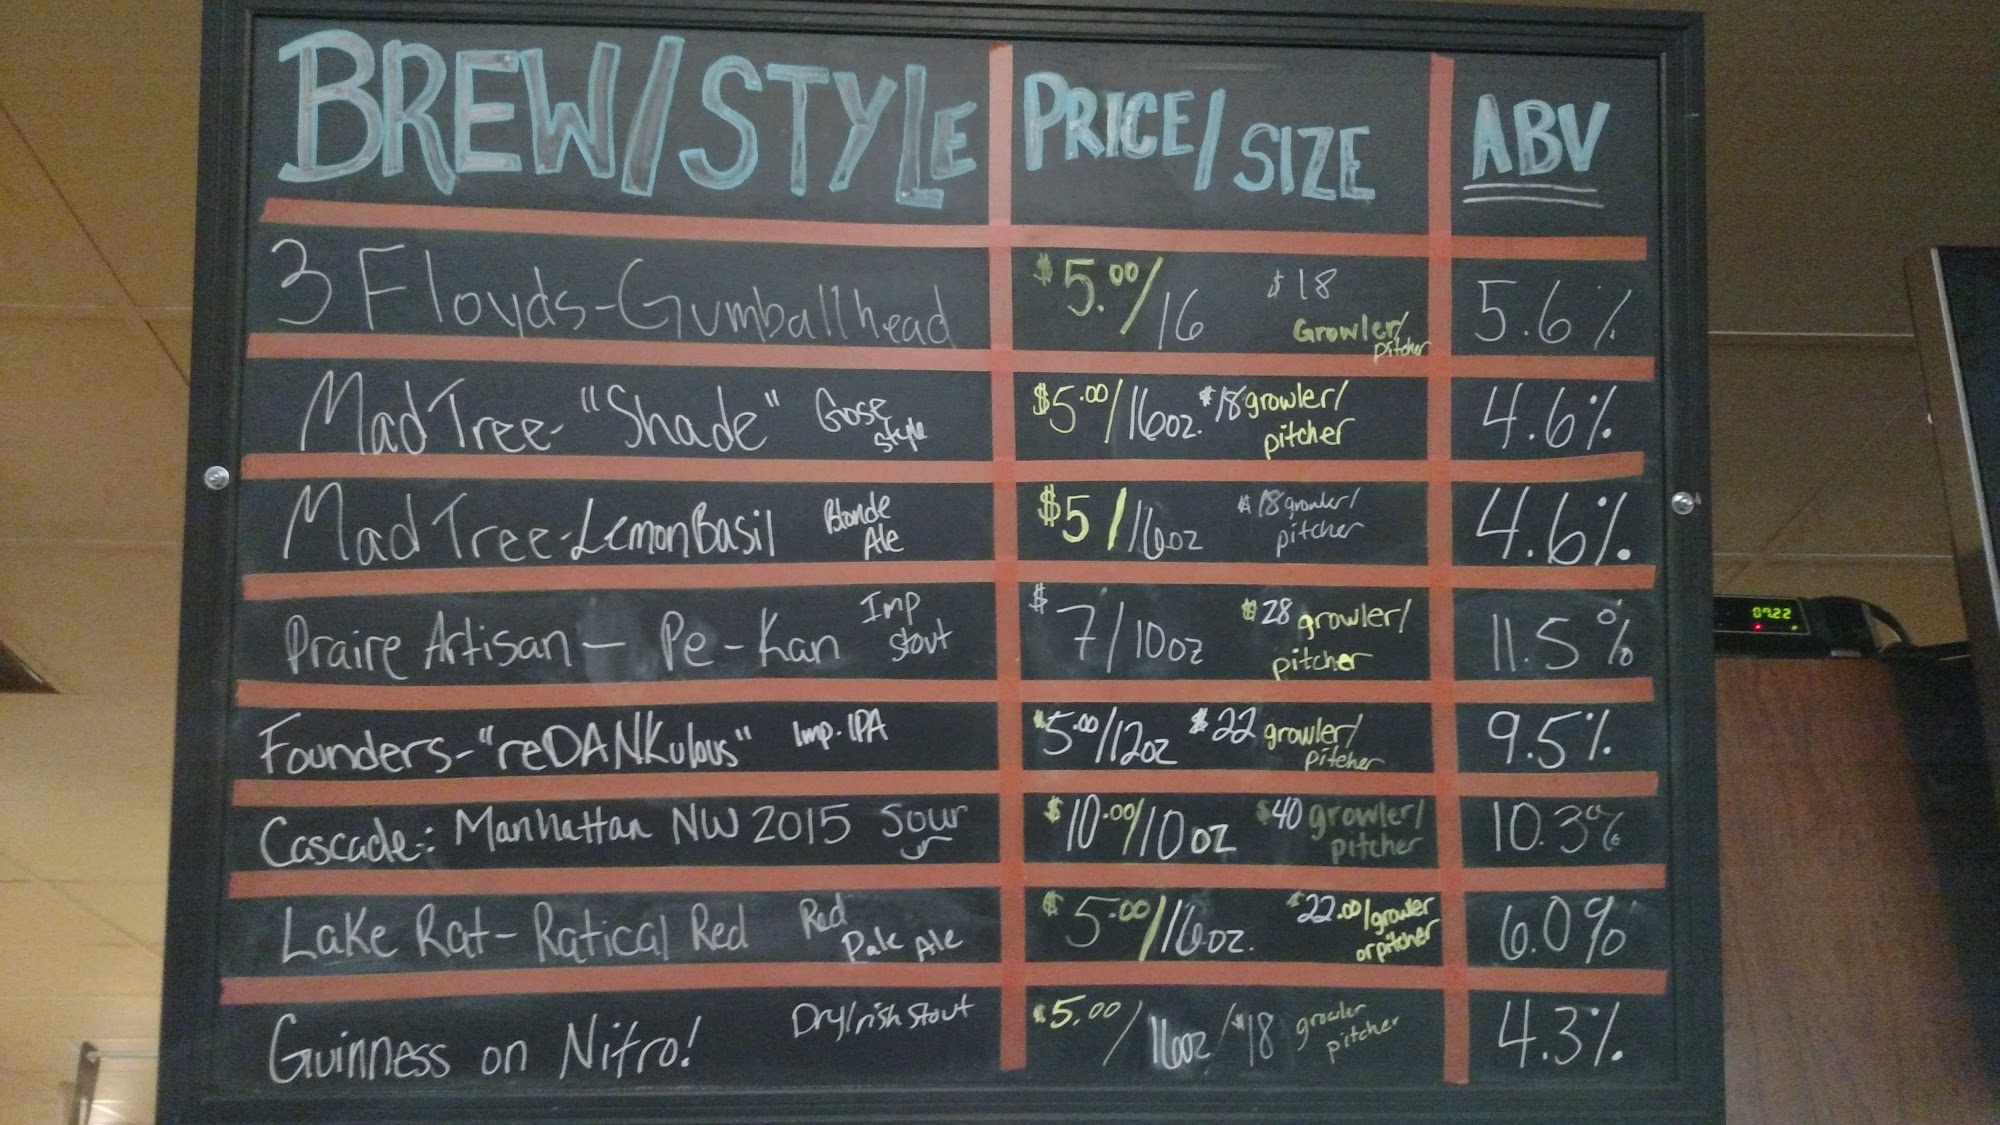 BREW/STYLE PRICE/SIZE ABV
3 Floyds-Gumballhead $5.00/16 $18 Growler/pitcher 5.6%
MadTree-"Shade" Gose style $5.00/16oz. $18 growler/pitcher 4.6%
MadTree-LemonBasil Blonde Ale $5/16oz $18 growler/pitcher 4.6%
Praire Artisan - Pe-Kan Imp stout $7/10oz $28 growler/pitcher 11.5%
Founders-"reDANKulous" Imp. IPA $5.00/12oz $22 growler/pitcher 9.5%
Cascade: Manhattan NW 2015 Sour $10.00/10oz $40 growler/pitcher 10.3%
Lake Rat-Ratical Red Red Pale Ale $5.00/16oz. $22.00/growler or pitcher 6.0%
Guinness on Nitro! Dry Irish stout $5.00/16oz/$18 growler pitcher 4.3%
07:22